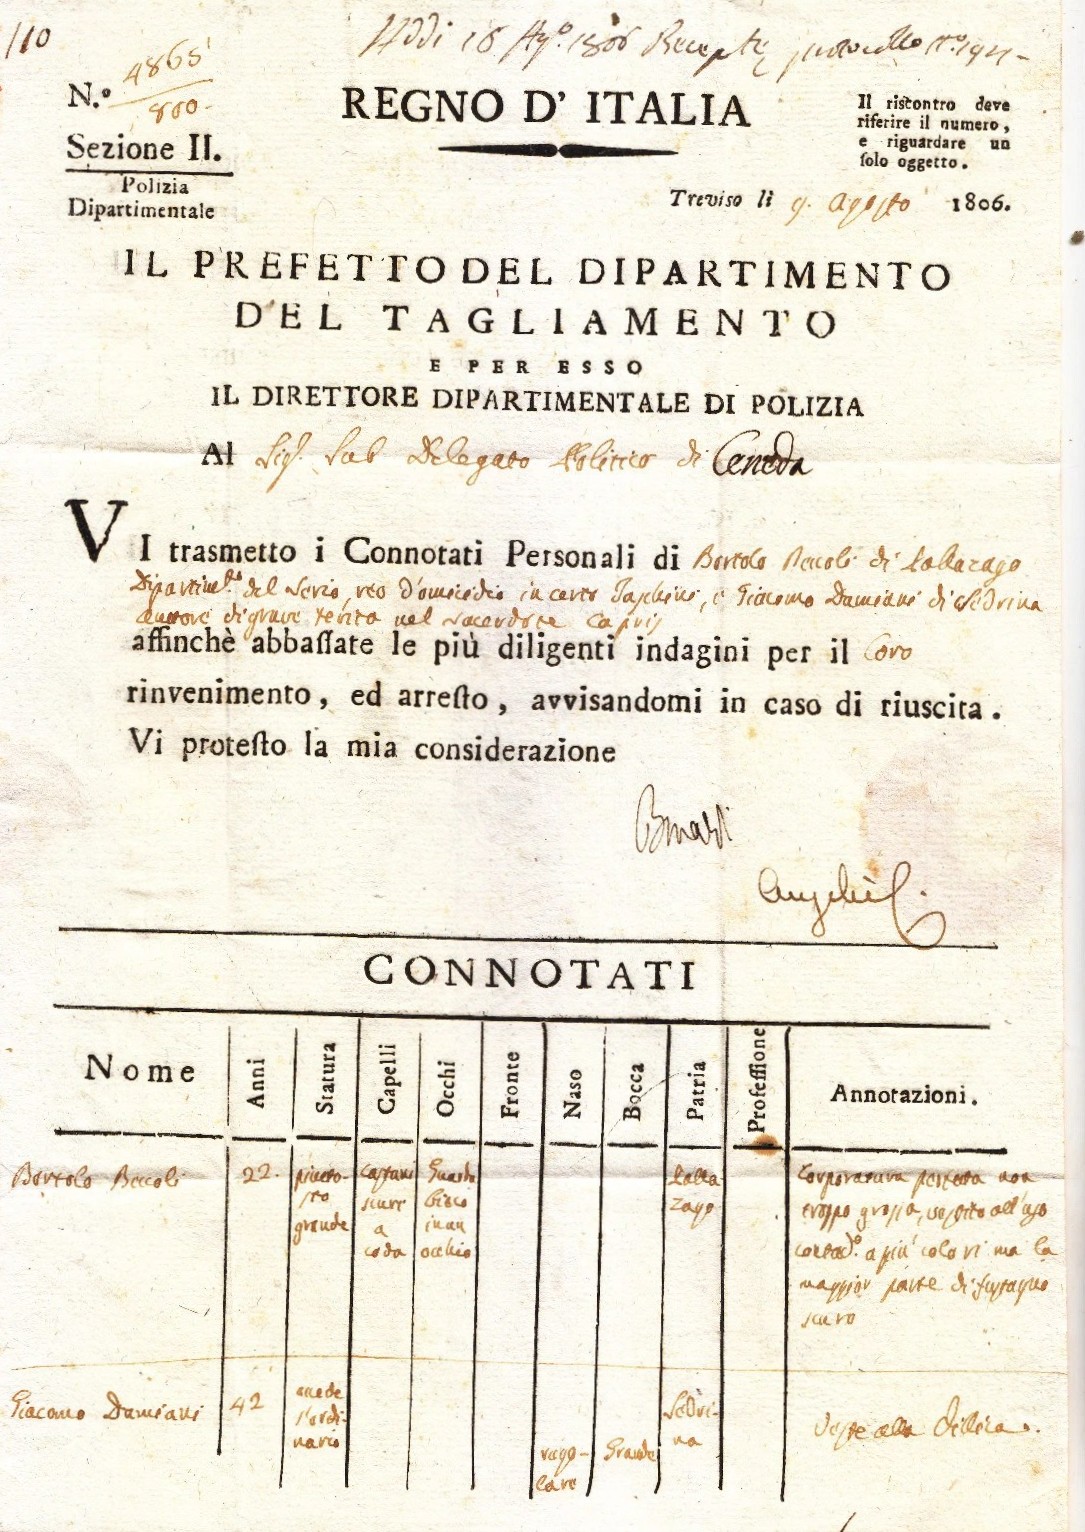 /10
Addi 18 Ag.o 1806 Recepta protocollo N.o 1921-
N.o 4865
800.
REGNO D' ITALIA
Il riscontro deve
riferire il numero,
e riguardare un
ſolo oggetto.
Sezione II.
Polizia
Dipartimentale
Treviso lì 9. Agosto 1806.
IL PREFETTO DEL DIPARTIMENTO
DEL TAGLIAMENTO
E PER ESSO
IL DIRETTORE DIPARTIMENTALE DI POLIZIA
Al Sig. Delegato Politico di Ceneda
VI trasmetto i Connotati Personali di Bortolo di Pallazago
Dipartim.to del Serio, reo d'omicidio in certo e Giacomo Damiani di Sedrina
autore di grave ferita nel Sacerdote Capris
affinchè abbaſſate le più diligenti indagini per il loro
rinvenimento, ed arreſto, avvisandomi in caso di riuscita.
Vi proteſto la mia considerazione
CONNOTATI
Nome Anni Statura Capelli Occhi Fronte Naso Bocca Patria Profeſſione Annotazioni.
Bortolo 22. piutto-
sto
grande
castani
scuri
a
coda
Guardo
bieco
in un
occhio
Palla
zago
Corporatura non
troppo grossa, vestito all'uso
contad.o a più colori ma la
maggior parte di fustagno
scuro
Giacomo Damiani 42
eccede
l'ordi-
nario
rego-
lare
Grande
Sedri-
na
Veste alla